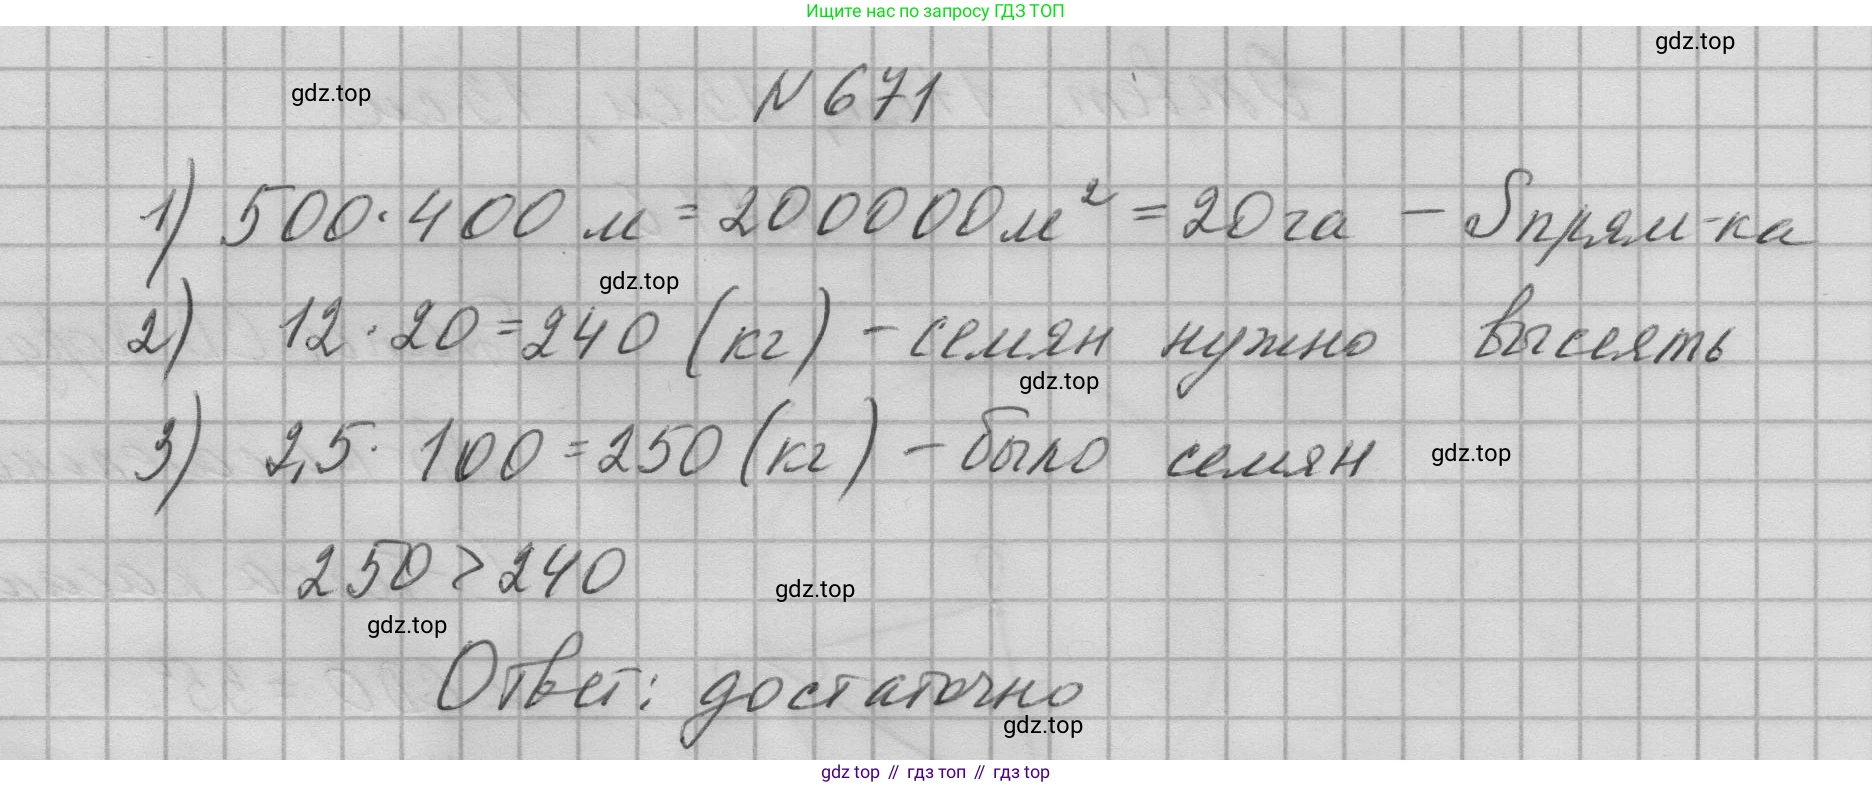 Ищите нас по запросу ГДЗ ТОП
gdz.top
gdz.top
N 671
1) 500·400 м = 200000 м² = 20 га – Sпрям-ка
gdz.top
2) 12·20=240 (кг) – семян нужно высеять
gdz.top
3) 2,5·100=250 (кг) – было семян
gdz.top
250>240
gdz.top
gdz.top
Ответ: достаточно
gdz.top
gdz top // гдз топ // гдз top